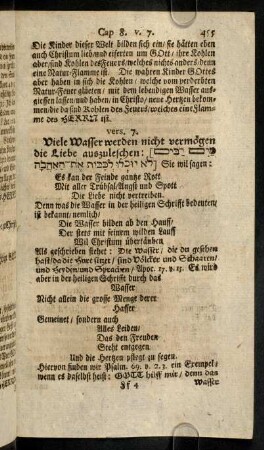 Cap 8. v. 7. 455
Die Kinder dieser Welt bilden sich ein/ sie hätten eben
auch Christum lieb und eifferten um GOtt/ ihre Kohlen
aber sind Kohlen des Feuers/ welches nichts anders/ denn
eine Natur-Flamme ist. Die wahren Kinder GOttes
aber haben in sich die Kohlen/ welche vom verderbten
Natur-Feuer gläeten/ mit dem lebendigen Wasser aus-
giessen lassen/ und haben/ in Christo/ neue Hertzen bekom-
men/ die da sind Kohlen des Feuers/ welches eine Flam-
me des HERRN ist.
vers. 7.
Viele Wasser werden nicht vermögen
die Liebe auszuleschen: [מים רבים
לא יוכלו לכבות את האהבה] Sie wil sagen:
Es kan der Feinde gantze Rott
Mit aller Trübsal/ Angst und Spott
Die Liebe nicht vertreiben.
Denn was die Wasser in der heiligen Schrifft bedeuten/
ist bekannt/ nemlich/
Die Wasser bilden ab den Hauff/
Der stets mit seinem wilden Lauff
Wil Christium überläuben
Als geschrieben stehet: Die Wasser/ die du gesehen
hast/ da die Hure sitzet/ sind Völcker und Schaaren/
und Heyden und Sprachen/ Apoc. 17. v. 15. Es wird
aber in der heiligen Schrifft durch das
Wasser
Nicht allein die grosse Menge derer
Hasser
Gemeinet/ sondern auch
Alles Leiden/
Das den Freuden
Steht entgegen
Und die Hertzen pflegt zu regen.
Hiervon finden wir Psalm. 69. v. 2. 3. ein Exempel/
wenn es daselbst heist: GOTT hilff mir/ denn das
Ff 4 Wasser